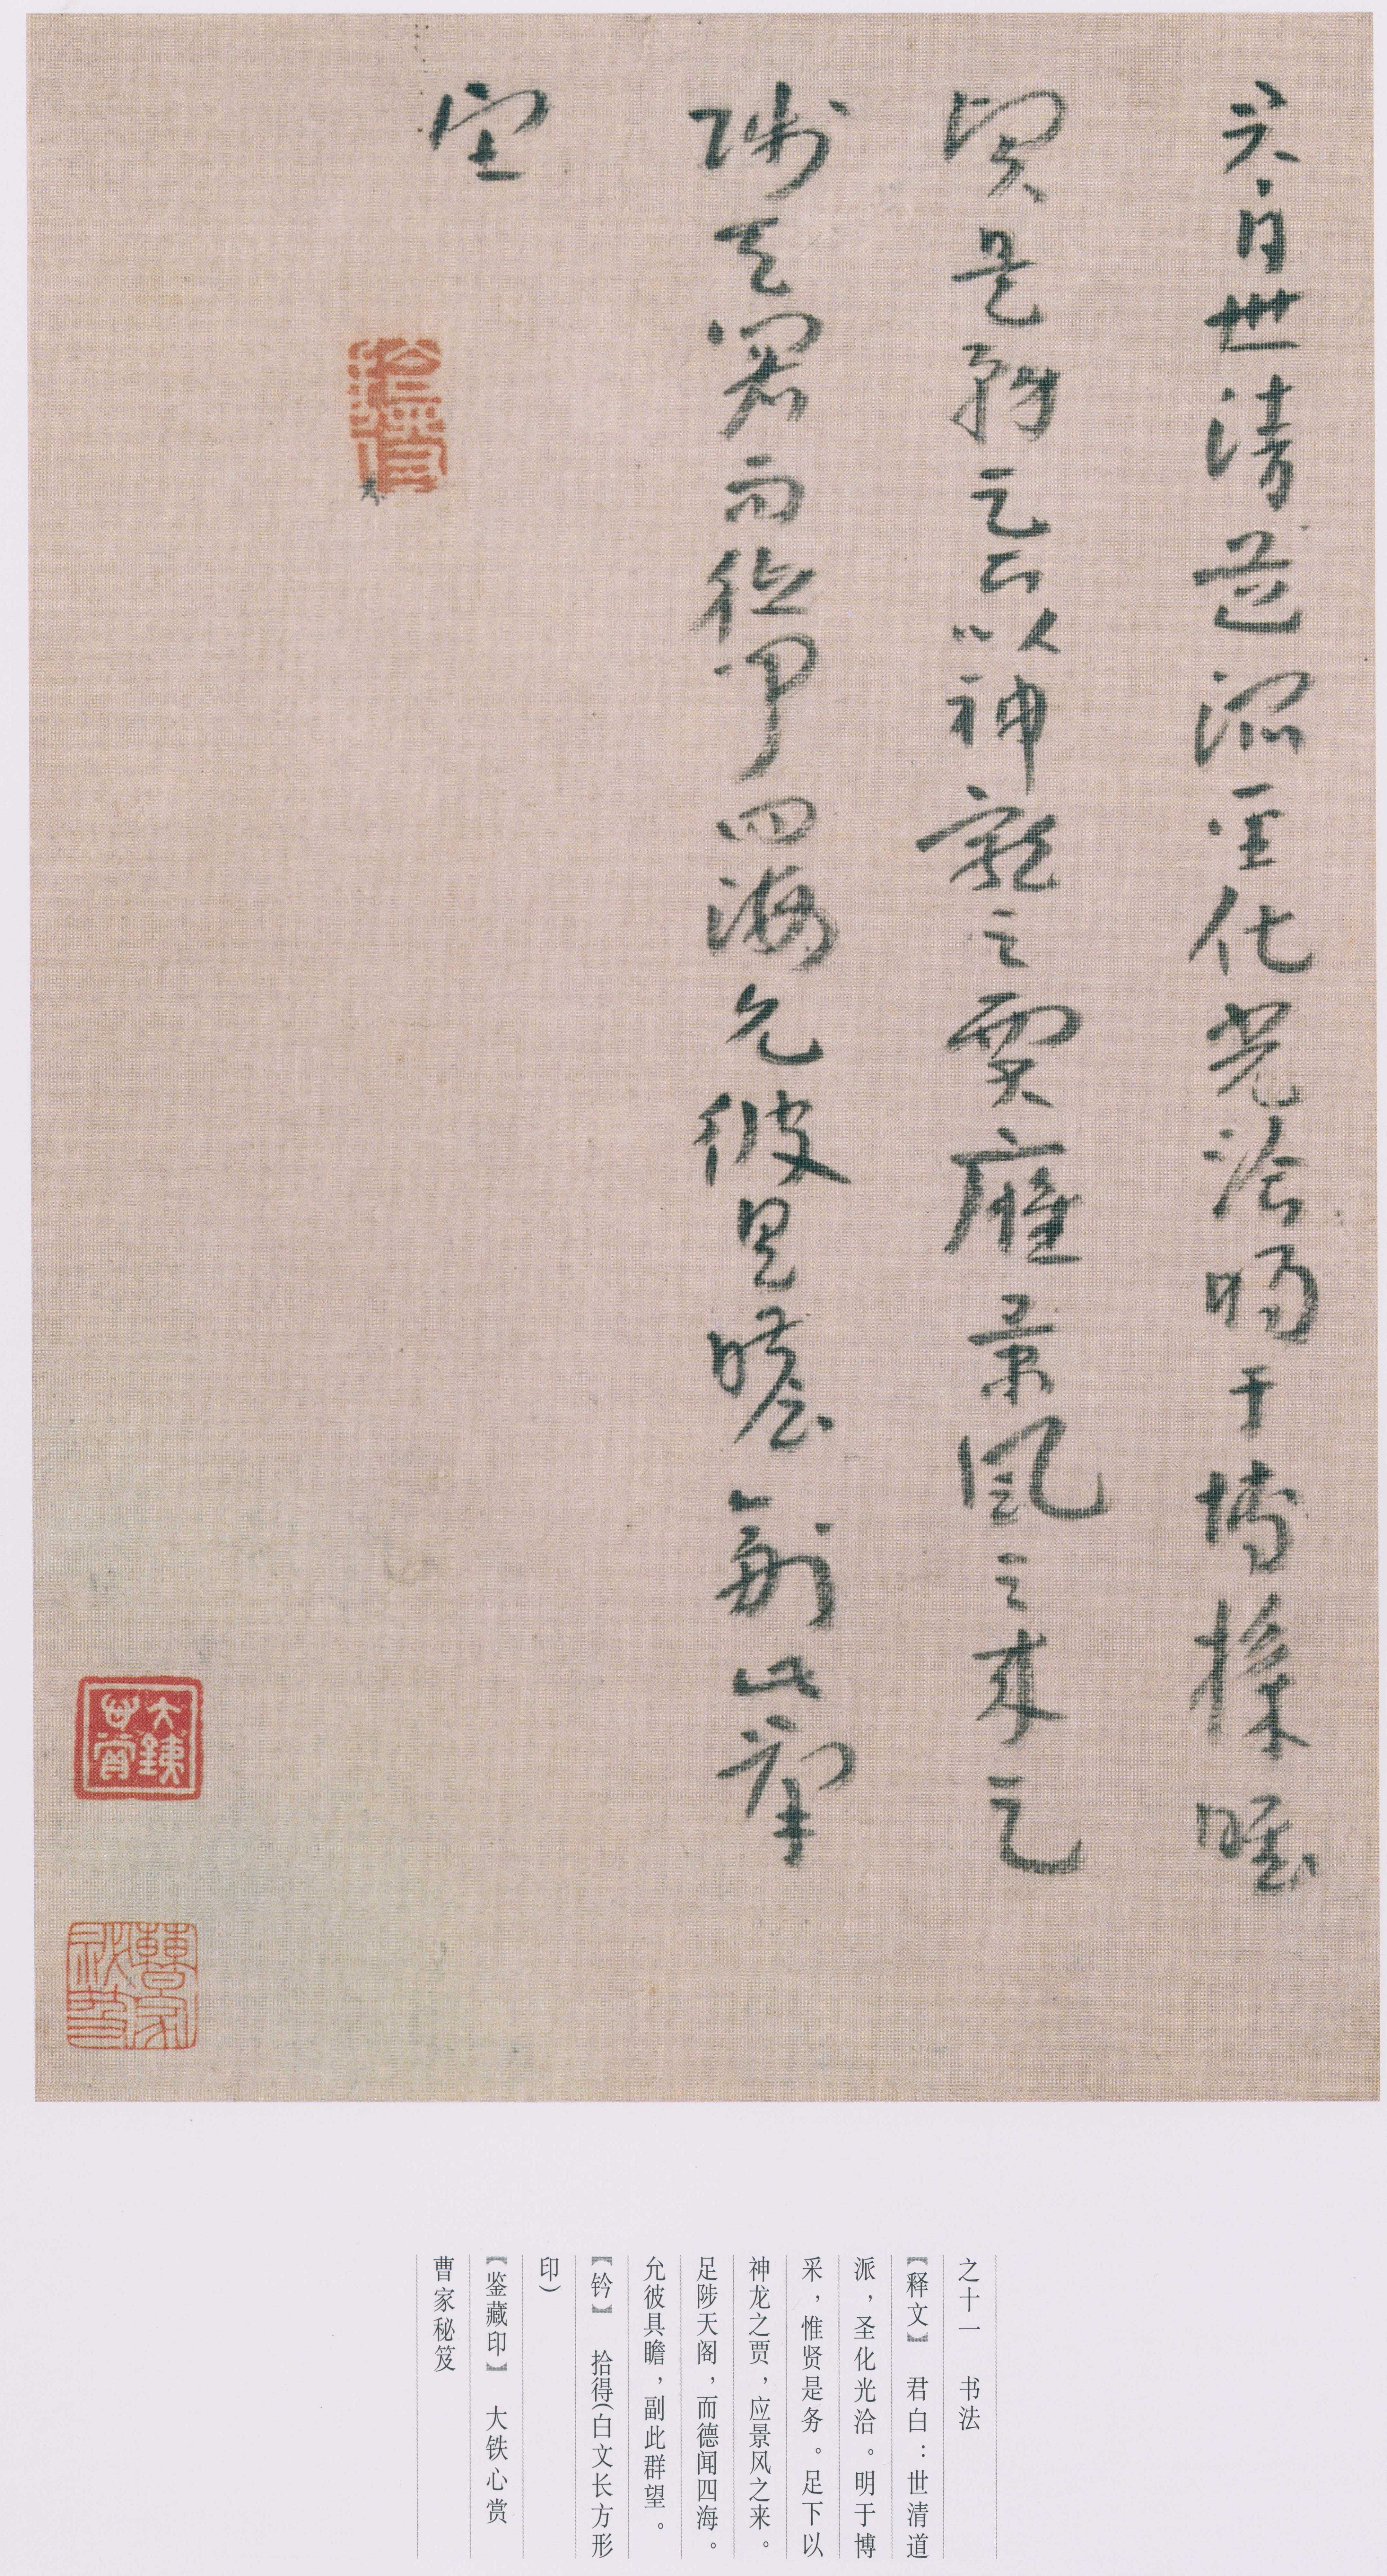 君白世清道派圣化光洽明于博採唯
贤是务足下以神龙之贾应景风之来
陟天阁而德闻四海允彼具瞻副此群
望
大铁
曹家
之十一　书法
【释文】　君白：世清道
派，圣化光洽。明于博
采，惟贤是务。足下以
神龙之贾，应景风之来。
足陟天阁，而德闻四海。
允彼具瞻，副此群望。
【钤】　拾得(白文长方形
印)
【鉴藏印】　大铁心赏
曹家秘笈